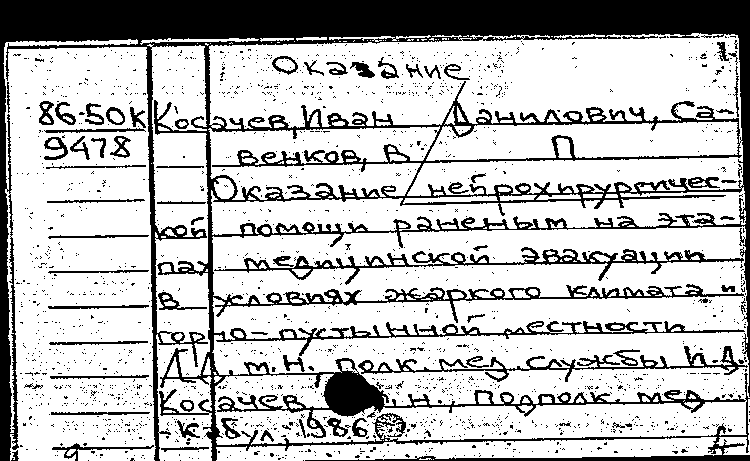 Оказание
86-50к Косачев, Иван Данилович, Са-
9478 венков, В П
Оказание нейрохирургичес-
кой помощи раненым на эта-
пах медицинской эвакуации
в условиях жаркого климата и
горно-пустынной местности
Д. м. н., полк. мед. службы И. Д.
Косачев, н., подполк. мед
Кабул, 1986